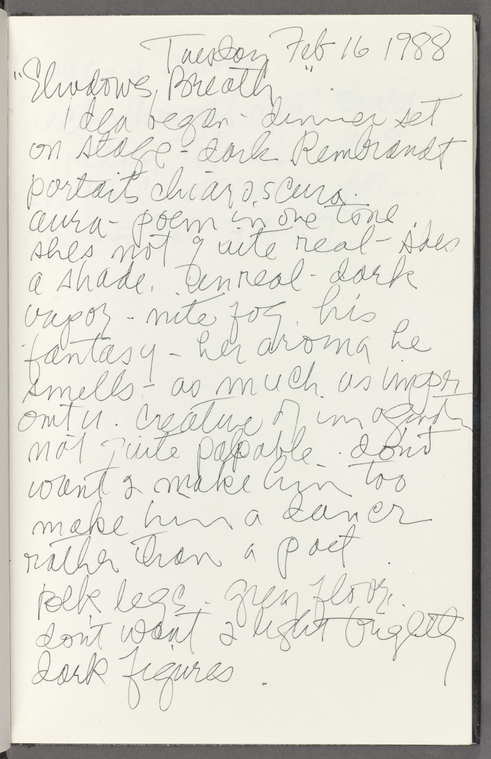 Tuesday Feb 16 1988
"Shadows, Breath"
Idea began - dinner set
on stage - dark Rembrandt
portait chiaroscuro.
aura - poem in one tone
shes not quite real - shes
a shade. Unreal - dark
vapor - nite fog. his
fantasy - her aroma he
smells - as much as
creature of
not quite papable. dont
want 2 make him too
make him a dancer
rather than a poet
legs - grey floor.
dont want 2 light brightly
dark figures.